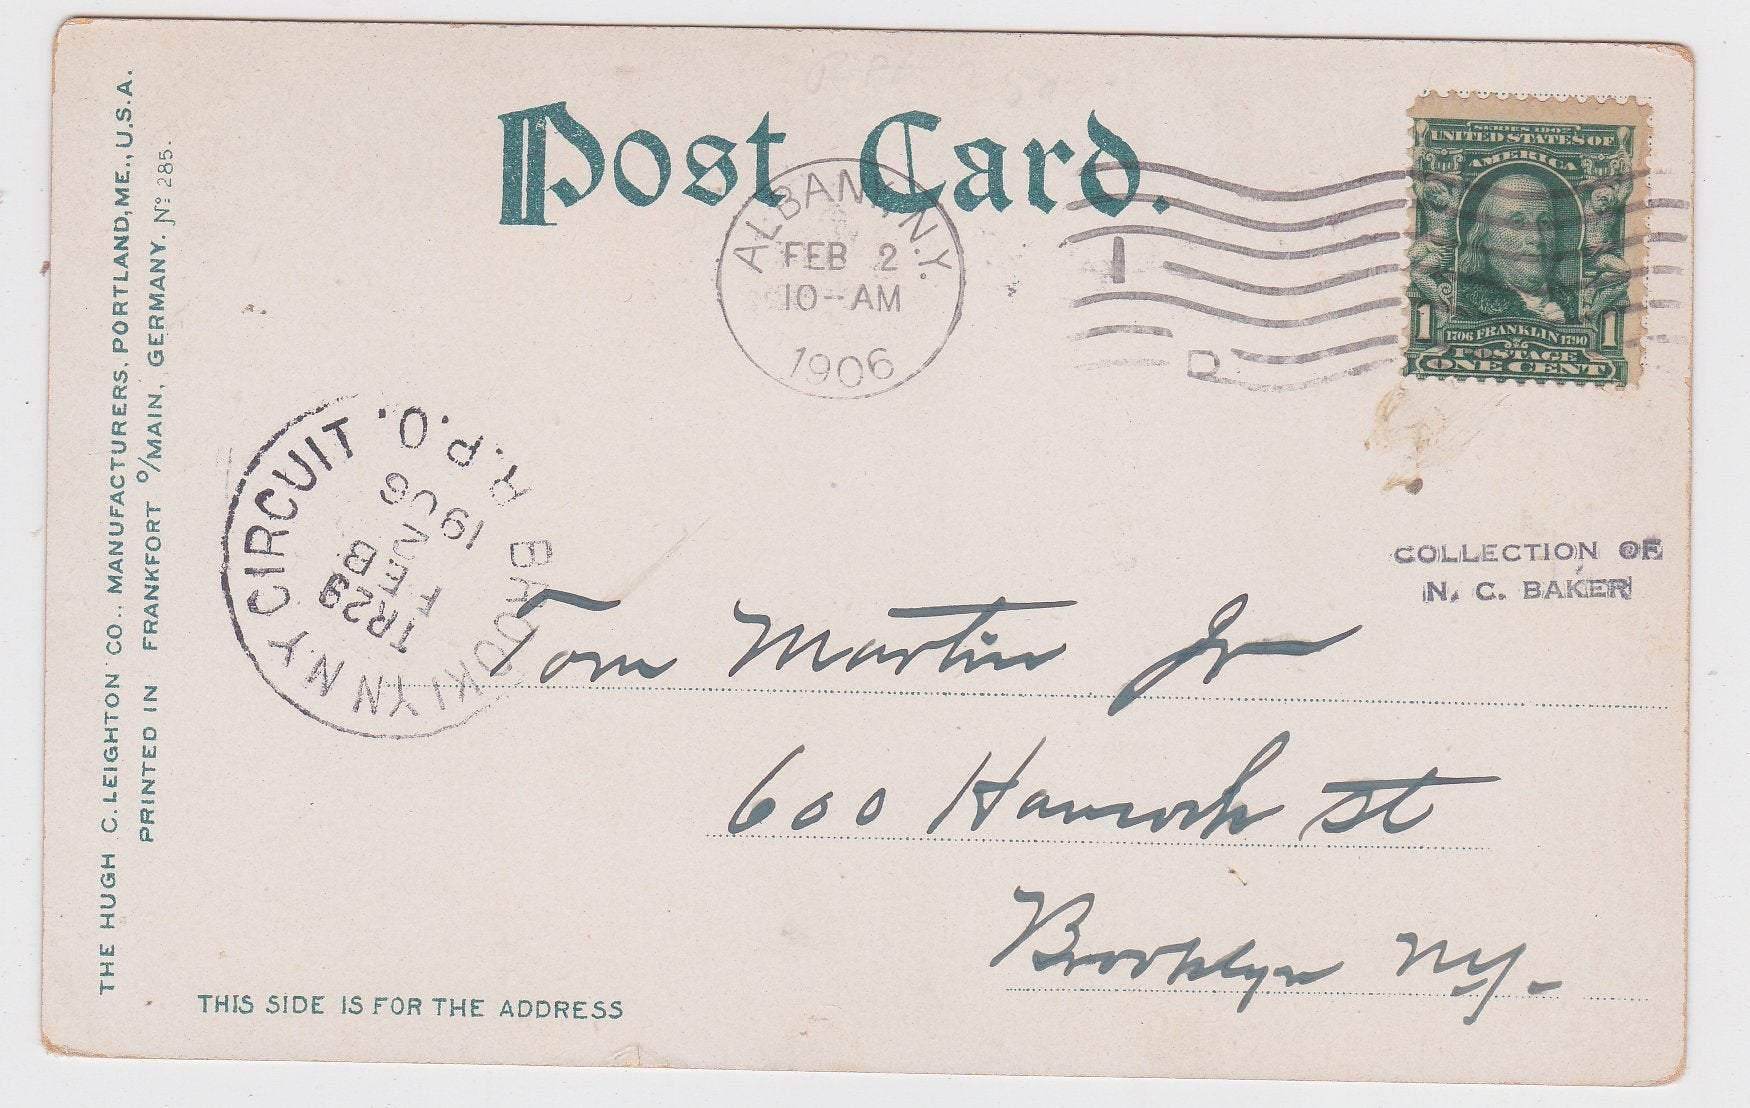 Post Card.
SERIES 1902
UNITED STATES OF
AMERICA
1706 FRANKLIN 1790
1 1
POSTAGE
ONE CENT
ALBANY, N.Y.
FEB 2
10-AM
1906
1
D
THE HUGH C. LEIGHTON CO., MANUFACTURERS, PORTLAND, ME., U.S.A.
PRINTED IN FRANKFORT o/MAIN, GERMANY. No 285.
BROOKLYN N.Y CIRCUIT. R.P.O.
TR29
FEB
2
1906
COLLECTION OF
N. C. BAKER
Tom Martin Jr
600 Hancock St
Brooklyn NY.
THIS SIDE IS FOR THE ADDRESS